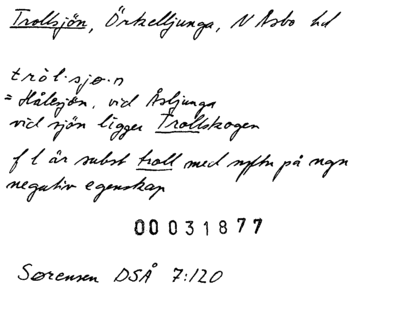 Trollsjön, Örkelljunga, N Åsbo hd
tròl·sjø·n
= Hålesjön, vid Åsljunga
vid sjön ligger Trollskogen
f l är subst troll med syftn på ngn
negativ egenskap
00031877
Sørensen DSÅ 7:120